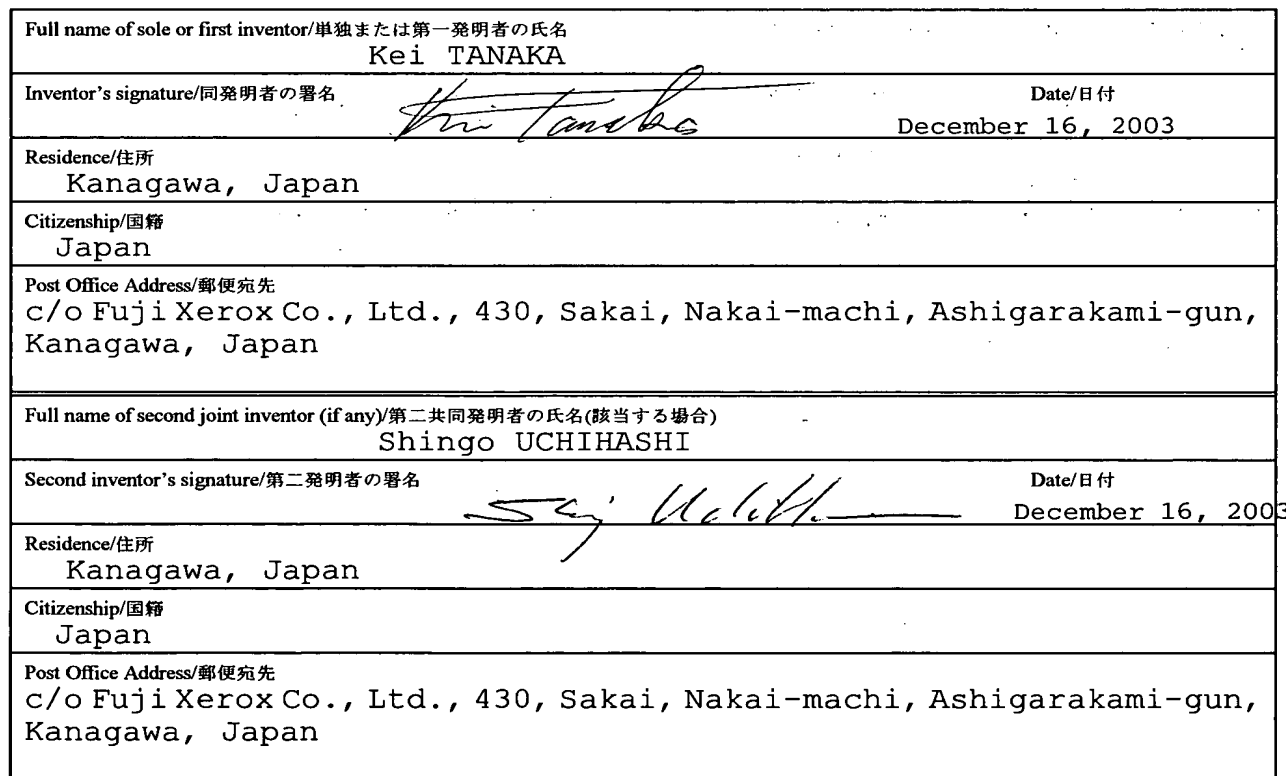 Full name of sole or first inventor/単独または第一発明者の氏名
Kei TANAKA
Inventor's signature/同発明者の署名
Kei Tanaka
Date/日付
December 16, 2003
Residence/住所
Kanagawa, Japan
Citizenship/国籍
Japan
Post Office Address/郵便宛先
c/o Fuji Xerox Co., Ltd., 430, Sakai, Nakai-machi, Ashigarakami-gun,
Kanagawa, Japan
Full name of second joint inventor (if any)/第二共同発明者の氏名(該当する場合)
Shingo UCHIHASHI
Second inventor's signature/第二発明者の署名
Date/日付
December 16, 2003
Residence/住所
Kanagawa, Japan
Citizenship/国籍
Japan
Post Office Address/郵便宛先
c/o Fuji Xerox Co., Ltd., 430, Sakai, Nakai-machi, Ashigarakami-gun,
Kanagawa, Japan